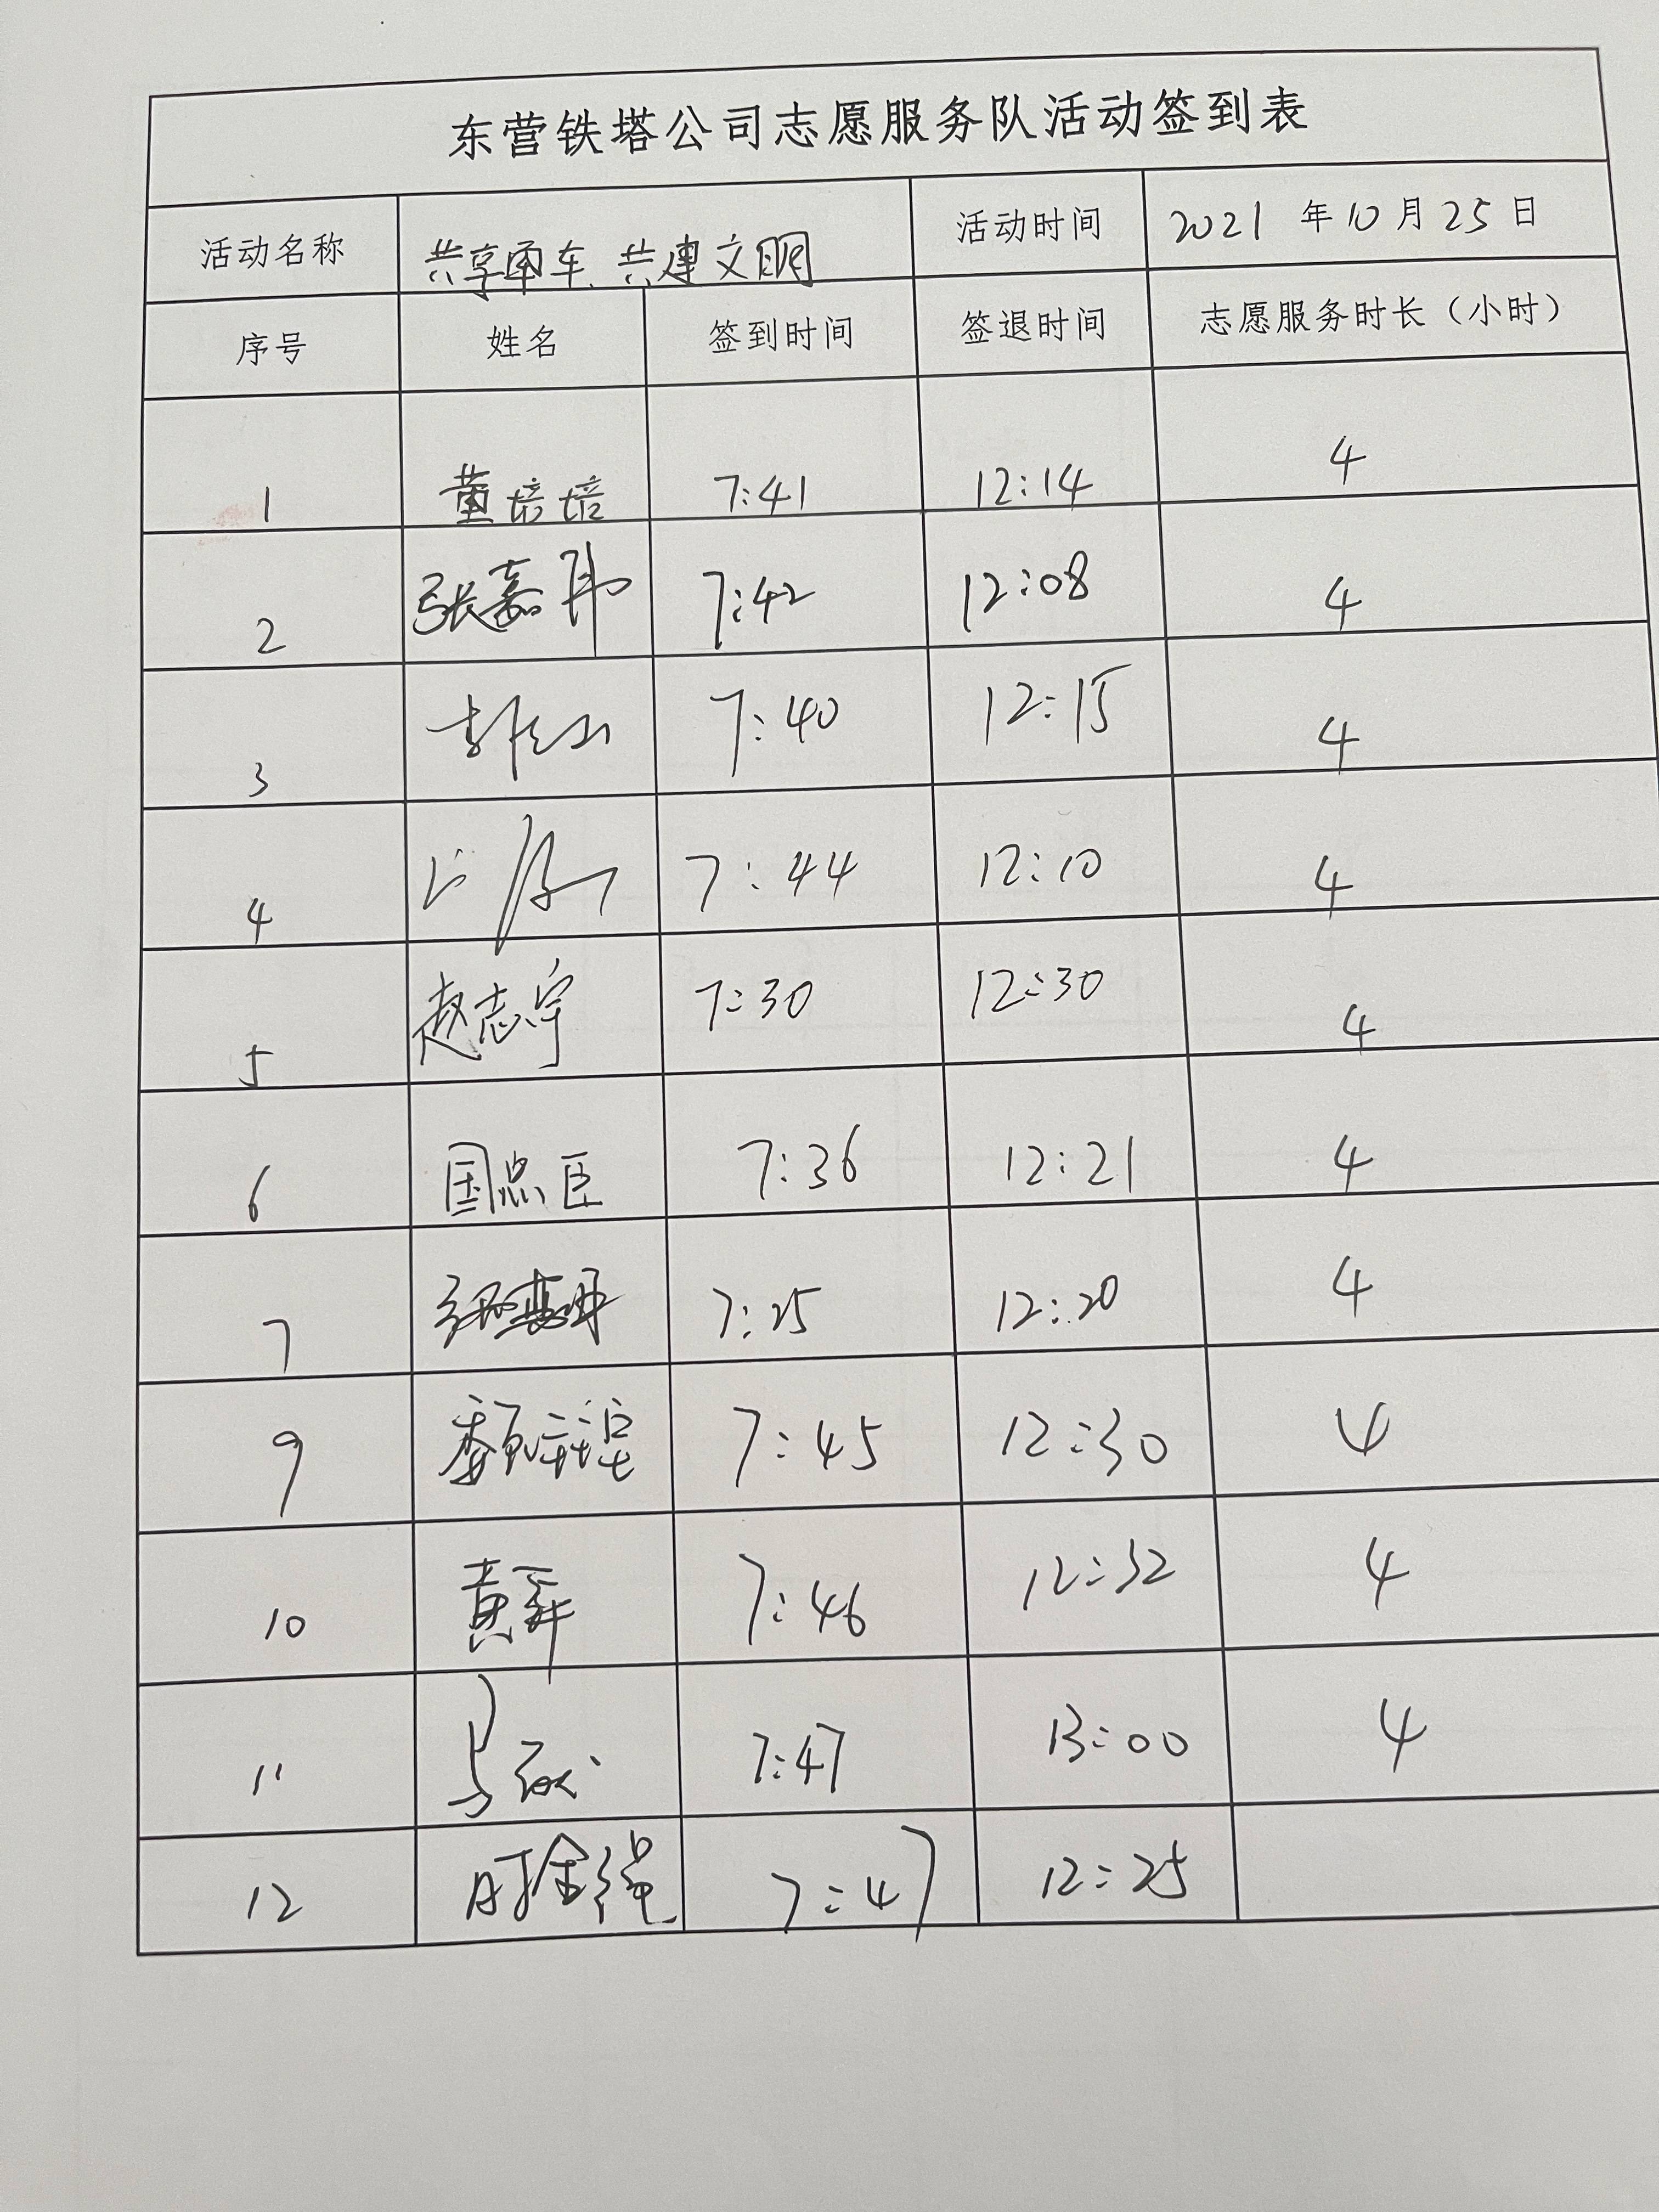 东营铁塔公司志愿服务队活动签到表
活动名称 共享单车、共建文明 活动时间 2021 年 10 月 25 日
序号 姓名 签到时间 签退时间 志愿服务时长（小时）
1 董培培 7:41 12:14 4
2 张嘉伟 7:42 12:08 4
3 7:40 12:15 4
4 7:44 12:10 4
5 赵志宇 7:30 12:30 4
6 国忠臣 7:36 12:21 4
7 7:25 12:20 4
9 7:45 12:30 4
10 黄军 7:46 12:32 4
11 7:47 13:00 4
12 时金绳 7:47 12:25